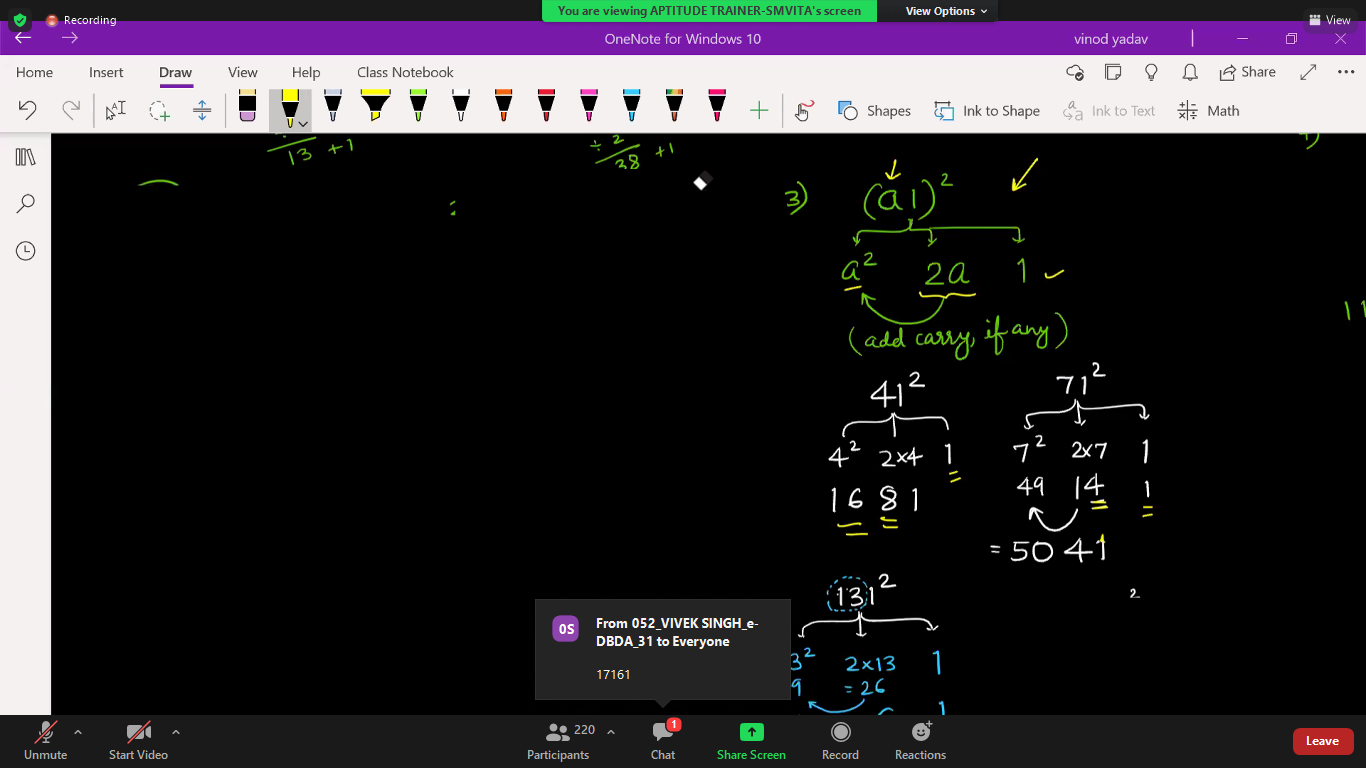 Recording
You are viewing APTITUDE TRAINER-SMVITA's screen
View Options
View
OneNote for Windows 10
vinod yadav
Home Insert Draw View Help Class Notebook
Share
Shapes
Ink to Shape
Ink to Text
Math
13 +1
÷ 2
28 +1
3) (a1)²
a² 2a 1
(add carry, if any)
41²
4² 2×4 1
16 8 1
71²
7² 2×7 1
49 14 1
= 50 41
131²
2
3² 2×13 1
9 = 26
1
0S
From 052_VIVEK SINGH_e-
DBDA_31 to Everyone
17161
Unmute
Start Video
Participants
220
Chat
1
Share Screen
Record
Reactions
Leave